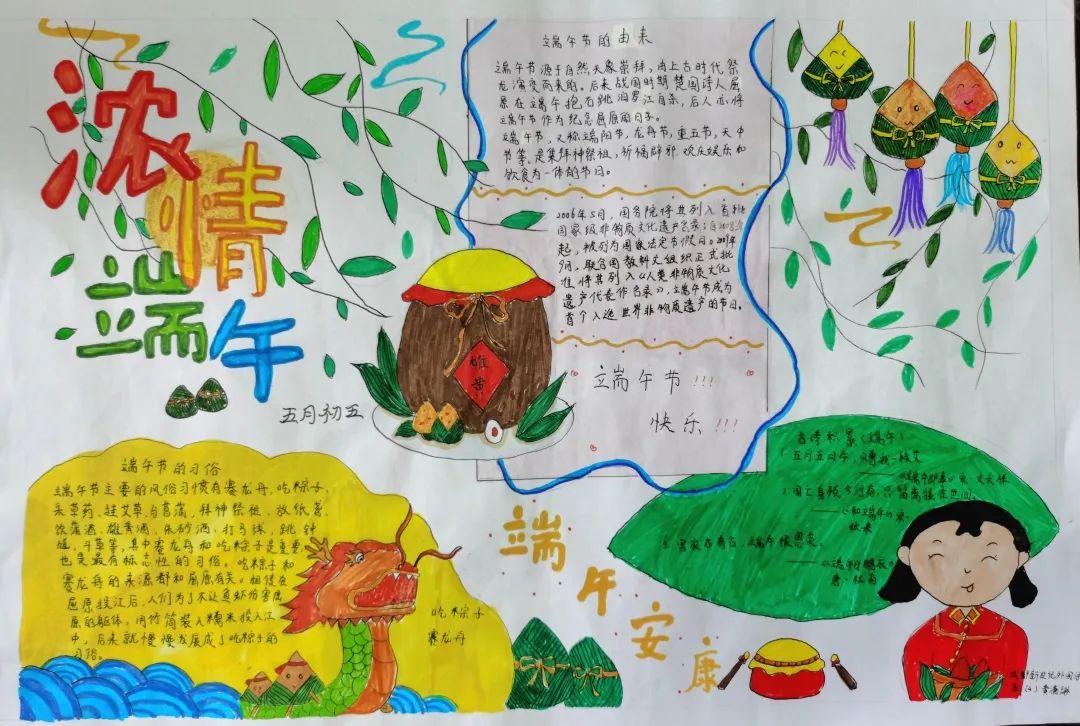 浓情
端午
五月初五
端午节的由来
端午节源于自然天象崇拜,由上古时代祭
龙演变而来的。后来战国时期楚国诗人屈
原在端午抱石跳汨罗江自杀,后人亦将
端午节作为纪念屈原的日子。
端午节,又称端阳节,龙舟节,重五节,天中
节等。是集拜神祭祖,祈福辟邪.欢庆娱乐和
饮食为一体的节日。
2006年5月,国务院将其列入首批
国家级非物质文化遗产名录;自2008年
起,被列为国家法定节假日。2009年
9月,联合国教科文组织正式批
准将其列入《人类非物质文化
遗产代表作名录》,端午节成为
首个入选世界非物质文化遗产的节日。
端午节!!!
快乐!!!
雄黄
端午节的习俗
端午节主要的风俗习惯有赛龙舟,吃粽子,
采草药,挂艾草与菖蒲,拜神祭祖,放纸鸢,
饮蒲酒,雄黄酒,朱砂酒,打马球,跳钟
馗,斗草等。其中赛龙舟和吃粽子是重要
也是最有标志性的习俗。吃粽子和
赛龙舟的来源都和屈原有关。相传在
屈原投江后,人们为了不让鱼虾伤害屈
原的躯体,用竹筒装入糯米投入江
中,后来就慢慢发展成了吃粽子的
习俗。
吃粽子
赛龙舟
端午安康
古诗积累(端午)
1.五月五日午,赠我一枝艾
《端午即事》宋·文天祥
2.国亡身殒今何有,只留离骚在世间。
——《和端午》宋·
3.宫衣亦有名,端午被恩荣。
——《端午日赐衣》
唐·杜甫